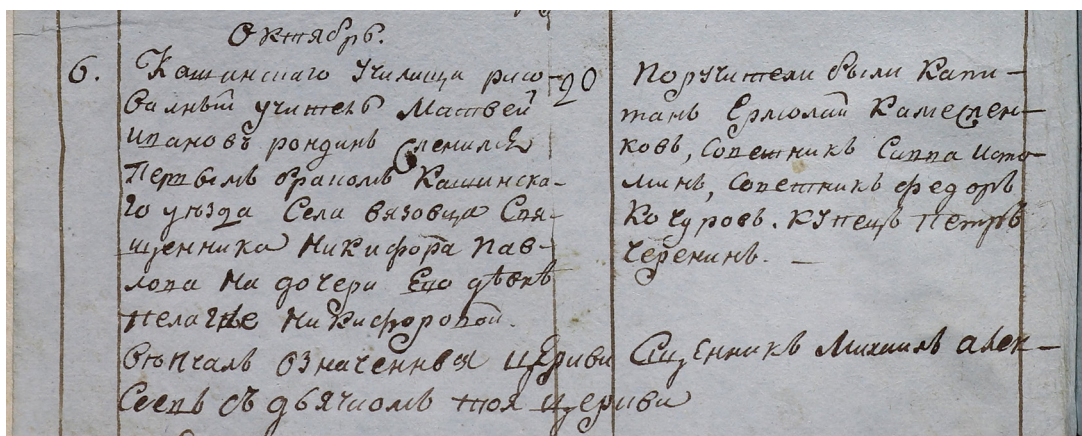 Октябрь.
6. Кашинскаго училища рисо-
вальный учитель Матвей
Ивановъ рондинъ Женился
Первымъ бракомъ Кашинска-
го уезда Села вязовца Свя-
щенника Никифора Пав-
лова На дочери Его дѣвкѣ
пелагѣе Никифоровой.
20
Поручители были Капи-
танъ Ермолай Каме
ковъ, Советникъ Савва Исто-
минъ, Советникъ федоръ
Кочуровъ. Купецъ Петръ
Черенинъ. —
Венчалъ означенныя церкви Священникъ Михаилъ алек-
Сеевъ съ дьячкомъ тоя церкви